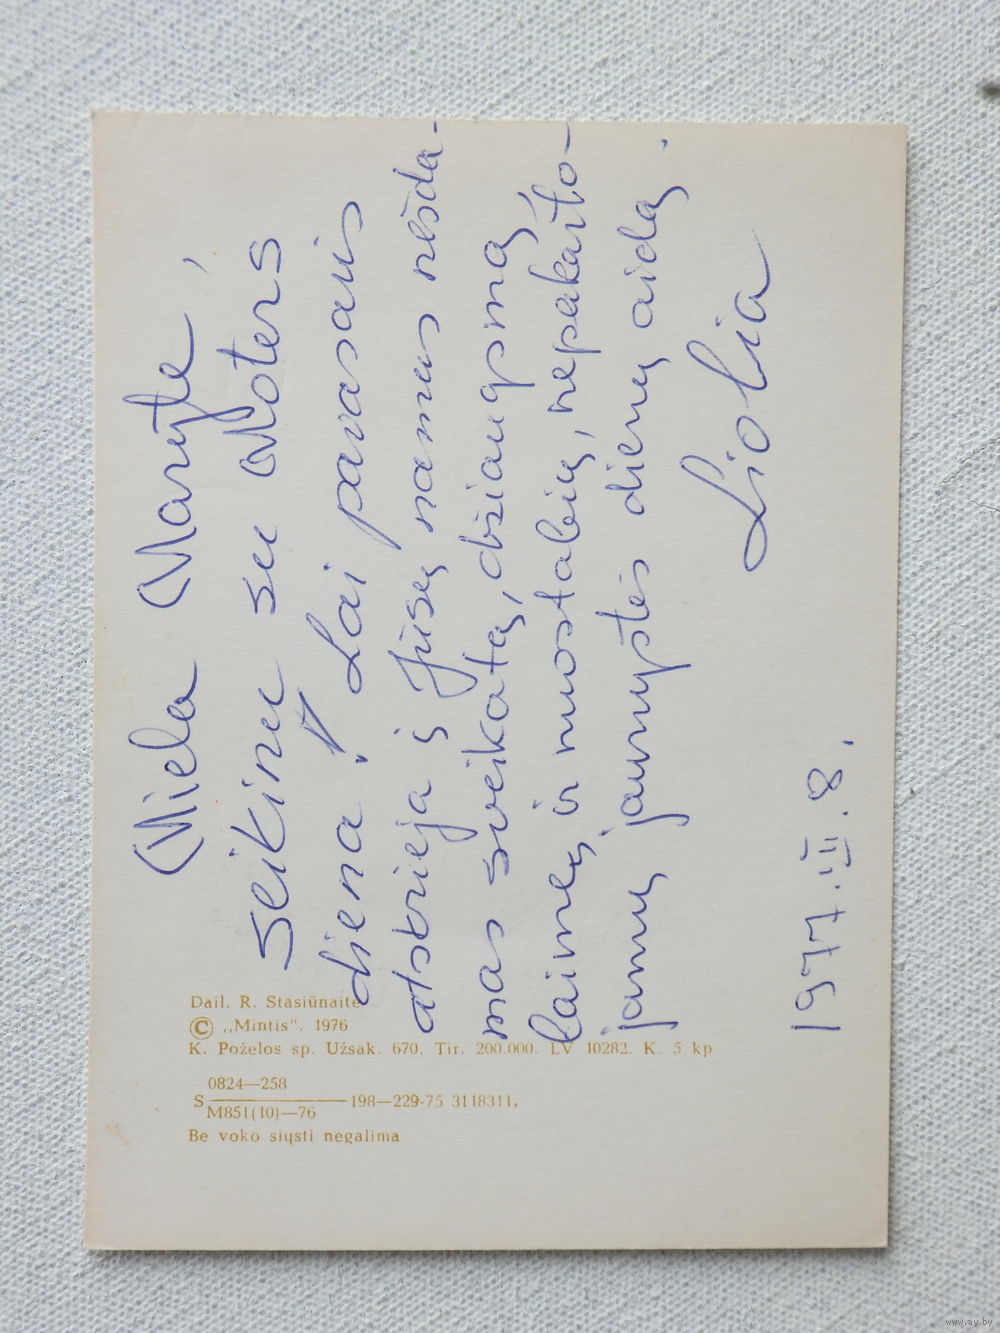 Miela Maryte,
seikinu su Moters
diena! Lai pavasaris
atskrieja į Jūsų namus nešda-
mas sveikatą, džiaugsmą,
laimę ir nuostabių, nepakarto-
jamų jaunystės dienų aidą.
Liolia
1977.III.8.
Dail. R. Stasiūnaitė
© „Mintis“. 1976
K. Poželos sp. Užsak. 670. Tir. 200.000. LV 10282. K. 5 kp
0824—258
S ——— 198—229-75 3118311.
M851(10)—76
Be voko siųsti negalima
www.ay.by